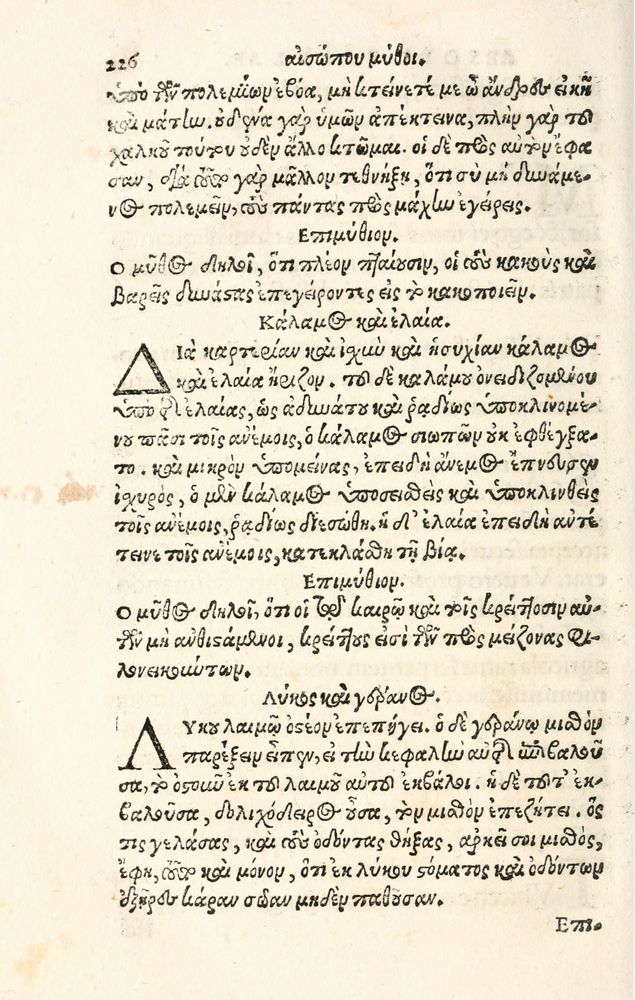 226 αἰσώπου μύθοι.
ὑπὸ τῶν πολεμίων ἐβόα, μὴ κτείνετέ με ὦ ἄνδρες εἰκῆ
καὶ μάτην. οὐδένα γὰρ ὑμῶν ἀπέκτεινα, πλὴν γὰρ τοῦ
χαλκοῦ τούτου οὐδὲν ἄλλο κτῶμαι. οἱ δὲ πρὸς αὐτὸν ἔφα
σαν, διὰ τοῦτο γὰρ μᾶλλον τεθνήξῃ, ὅτι σὺ μὴ δυνάμε-
νος πολεμεῖν, τοὺς πάντας πρὸς μάχην ἐγείρεις.
Επιμύθιον.
Ο μῦθος δηλοῖ, ὅτι πλέον πταίουσιν, οἱ τοὺς κακοὺς καὶ
βαρεῖς δυνάστας ἐπεγείροντες εἰς τὸ κακοποιεῖν.
Κάλαμος καὶ ἐλαία.
ΔΙὰ καρτερίαν καὶ ἰχὺν καὶ ἡσυχίαν κάλαμος
καὶ ἐλαία ἤριζον. τοῦ δὲ καλάμου ὀνειδιζομένου
ὑπὸ τῆς ἐλαίας, ὡς ἀδυνάτου καὶ ῥαδίως ὑποκλινομέ-
νου πᾶσι τοῖς ἀνέμοις, ὁ κάλαμος σιωπῶν οὐκ ἐφθέγξα-
το. καὶ μικρὸν ὑπομείνας, ἐπειδὴ ἄνεμος ἔπνευσεν
ἰχυρὸς, ὁ μὲν κάλαμος ὑποσεισθεὶς καὶ ὑποκλινθεὶς
τοῖς ἀνέμοις, ῥαδίως διεσώθη. ἡ δ' ἐλαία ἐπειδὴ ἀντέ
τεινε τοῖς ἀνέμοις, κατεκλάσθη τῇ βίᾳ.
Επιμύθιον.
Ο μῦθος δηλοῖ, ὅτι οἱ τῷ καιρῷ καὶ τοῖς κρείττοσιν αὐ-
τῶν μὴ ἀνθιστάμενοι, κρείττους εἰσὶ τῶν πρὸς μείζονας φι-
λονεικούντων.
Λύκος καὶ γέρανος.
ΛΥκου λαιμῷ ὀστέον ἐπεπήγει. ὁ δὲ γεράνῳ μισθὸν
παρέξειν εἶπεν, εἰ τὴν κεφαλὴν αὐτῆς ἐπιβαλοῦ
σα, τὸ ὀστοῦν ἐκ τοῦ λαιμοῦ αὐτοῦ ἐκβάλοι. ἡ δὲ τοῦτ' ἐκ-
βαλοῦσα, δολιχόδειρος οὖσα, τὸν μισθὸν ἐπεζήτει. ὅς
τις γελάσας, καὶ τοὺς ὀδόντας θήξας, ἀρκεῖ σοι μισθὸς,
ἔφη, τοῦτο καὶ μόνον, ὅτι ἐκ λύκου στόματος καὶ ὀδόντων
ἐξῆρες κάραν σώαν μηδὲν παθοῦσαν.
Επι-